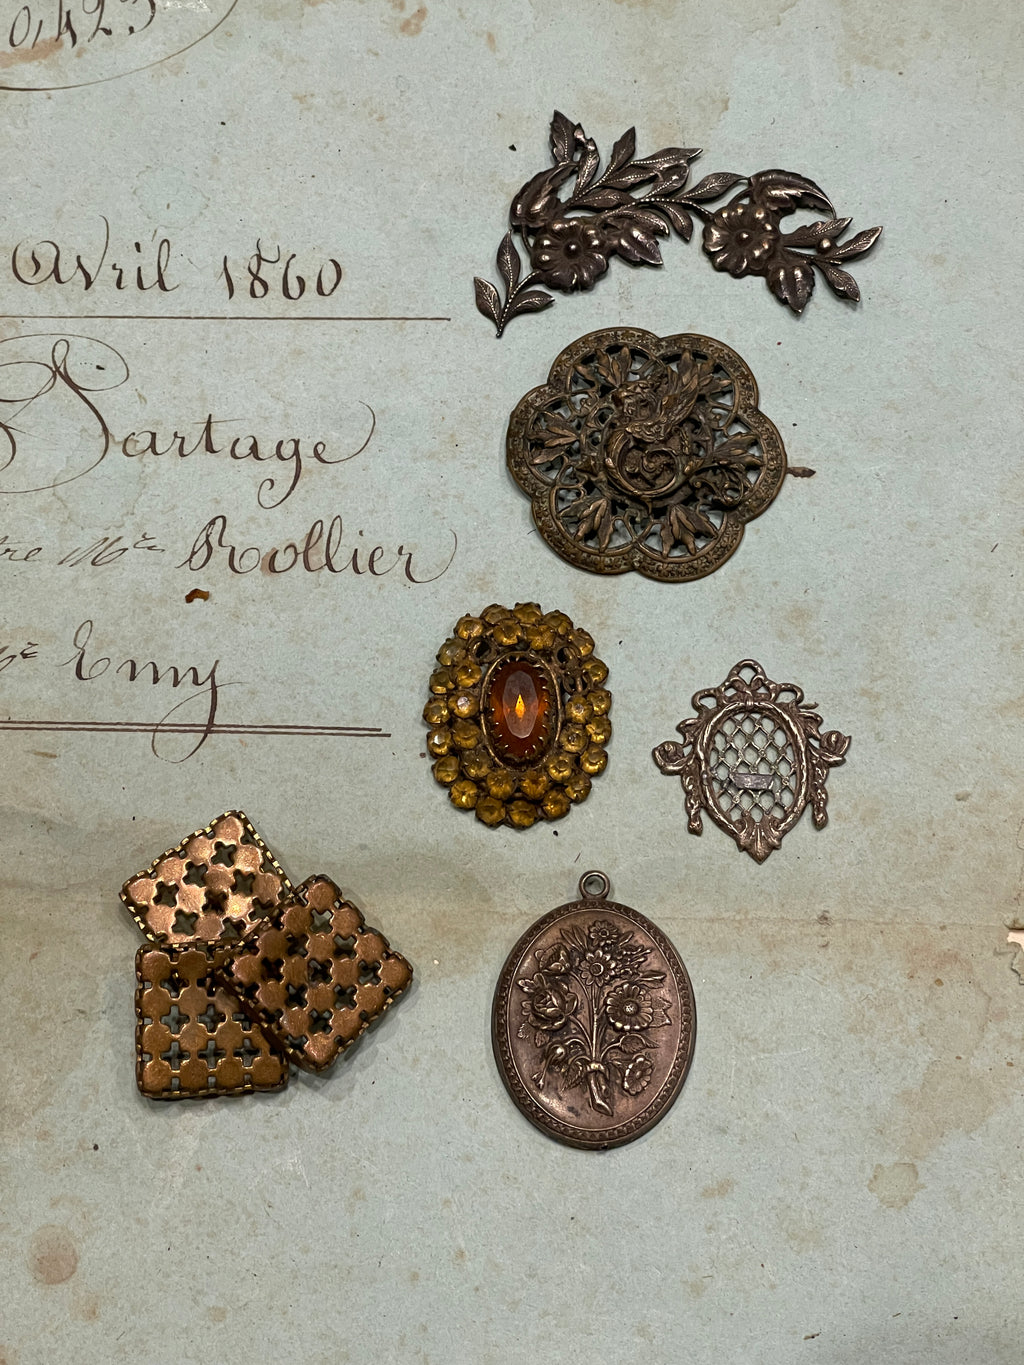 0,423
Avril 1860
Partage
tre Mre Rollier
Mr Emy